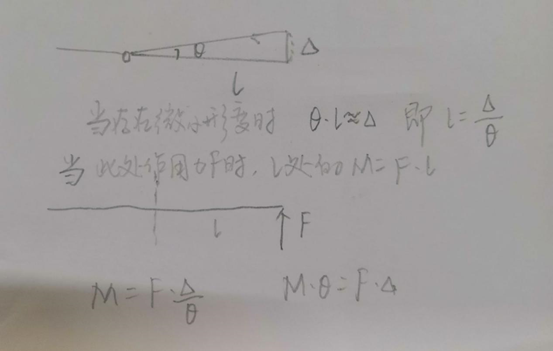 θ Δ
l
当存在微小形变时 θ·l≈Δ 即 l=Δ/θ
当此处作用力F时，l处的M=F·l
l F
M=F·Δ/θ M·θ=F·Δ